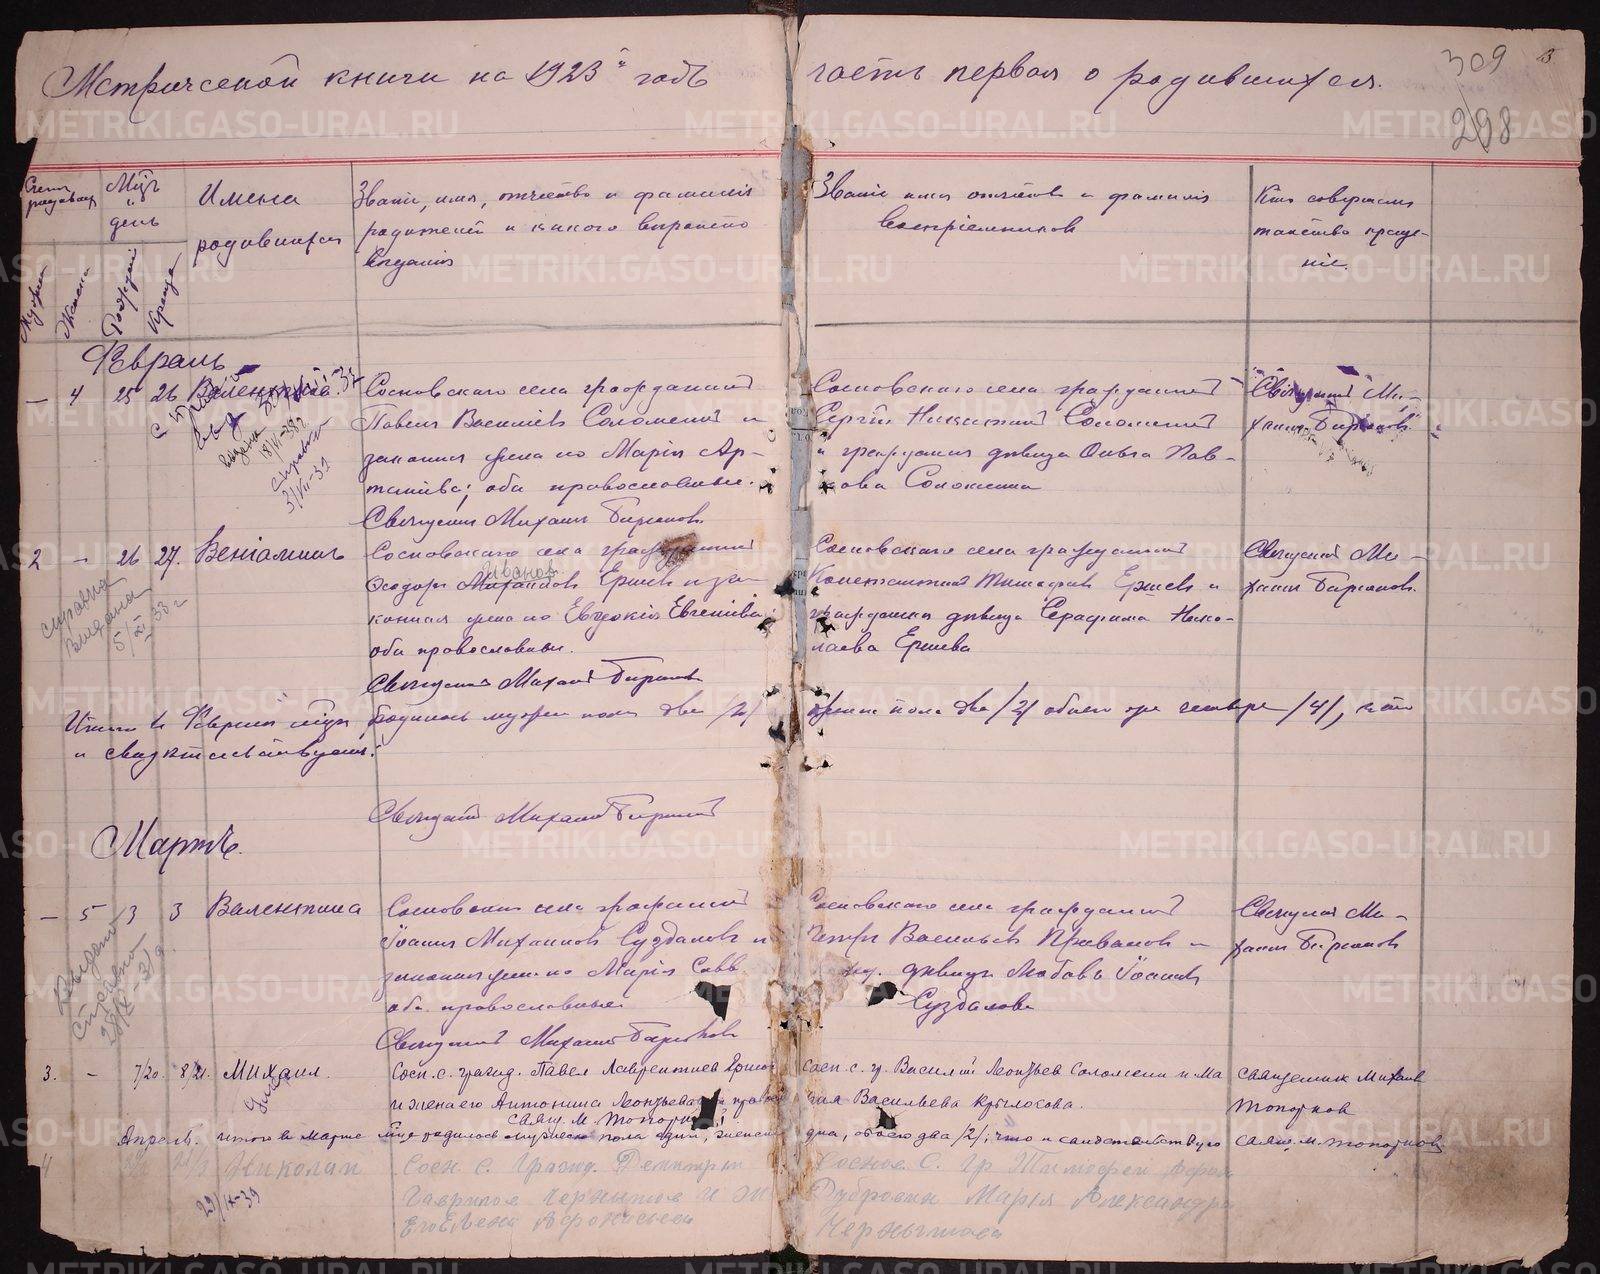 Метрической книги на 1923й годъ часть первая о родившихся.
309
298
Счетъ родившихся
Мѣц. и день
Имена родившихся
Званіе, имя, отчество и фамилія
родителей и какого вѣроисповѣданія
Званіе имя отчество и фамилія
воспріемниковъ
Кто совершалъ
таинство креще-
ніе.
Мужска
Женска
Рожденія
Креще
Февраль
— 4 25 26 Валентина
Сосновскаго села гражданинъ
Павелъ Васильевъ Соломеинъ и
законная жена его Марія Ар-
оба православные.
Священникъ Михаилъ Бирюковъ
Сосновскаго села гражданинъ
Сергѣй Никитинъ Соломеинъ
и гражданка дѣвица Ольга Пав-
лова Соломеина
Священникъ Ми-
хаилъ Бирюковъ
справка
выдана
18/V-38г
справка
3/VII-39
2 — 26 27. Веніаминъ
Сосновскаго села гражданинъ
Иванов.
Ѳеодоръ Михайловъ Ершевъ и за-
конная жена его Евдокія Евгеніева;
оба православные.
Священникъ Михаилъ Бирюковъ
Сосновскаго села гражданинъ
Константинъ Тимофѣевъ Ершевъ и
гражданка дѣвица Серафима Нико-
лаева Ершева
Священникъ Ми-
хаилъ Бирюковъ.
справка
выдана
5/XI 38г
Итого въ Февралѣ мѣсяцѣ родилось мужска пола два /2/ женска пола два /2/ обоего же четыре /4/, что
и свидѣтельствуемъ:
Священникъ Михаилъ Бирюковъ
Мартъ.
— 5 3 Валентина
Сосновскаго села гражданинъ
Іоаннъ Михаиловъ Суздаловъ и
законная жена его Марія Савв
оба православные
Священникъ Михаилъ Бирюковъ
Сосновскаго села гражданинъ
Петръ Васильевъ Приваловъ и
дѣвица Любовь Іоаннов
Суздалова
Священникъ Ми-
хаилъ Бирюковъ
Выдана
справка
3. — 7/20. 8/21. Михаил.
Сосн. с. гражд. Павел Лаврентиев Ершов
и жена его Антонина Леонтьева
свящ. М. Топорков
Сосн. с. гр. Василий Леонтьев Соломеин и Ма
рия Васильева Крылосова.
священник Михаил
Топорков
Апрель. итого в марте м-це родилось мужеска пола один, женска
дна, обоего два /2/; что и свидетельствую свящ. М. Топорков
4 Николай
Сосн. с. Гражд. Димитрий
Гаврилов Чернышов и ж
его Елена Афонасьева
Соснов. с. гр Тимофей
Дубровин Мария Александро
Чернышова
29/IX-39
METRIKI.GASO-URAL.RU